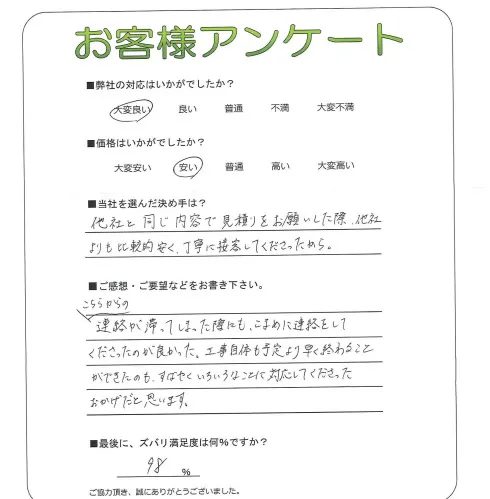 お客様アンケート
■弊社の対応はいかがでしたか？
大変良い 良い 普通 不満 大変不満
■価格はいかがでしたか？
大変安い 安い 普通 高い 大変高い
■当社を選んだ決め手は？
他社と同じ内容で見積りをお願いした際、他社
よりも比較的安く、丁寧に接客してくださったから。
■ご感想・ご要望などをお書き下さい。
こちらからの
連絡が滞ってしまった際にも、こまめに連絡をして
くださったのが良かった。工事自体も予定より早く終わること
ができたのも、すばやくいろいろなことに対応してくださった
おかげだと思います。
■最後に、ズバリ満足度は何%ですか？
98 %
ご協力頂き、誠にありがとうございました。